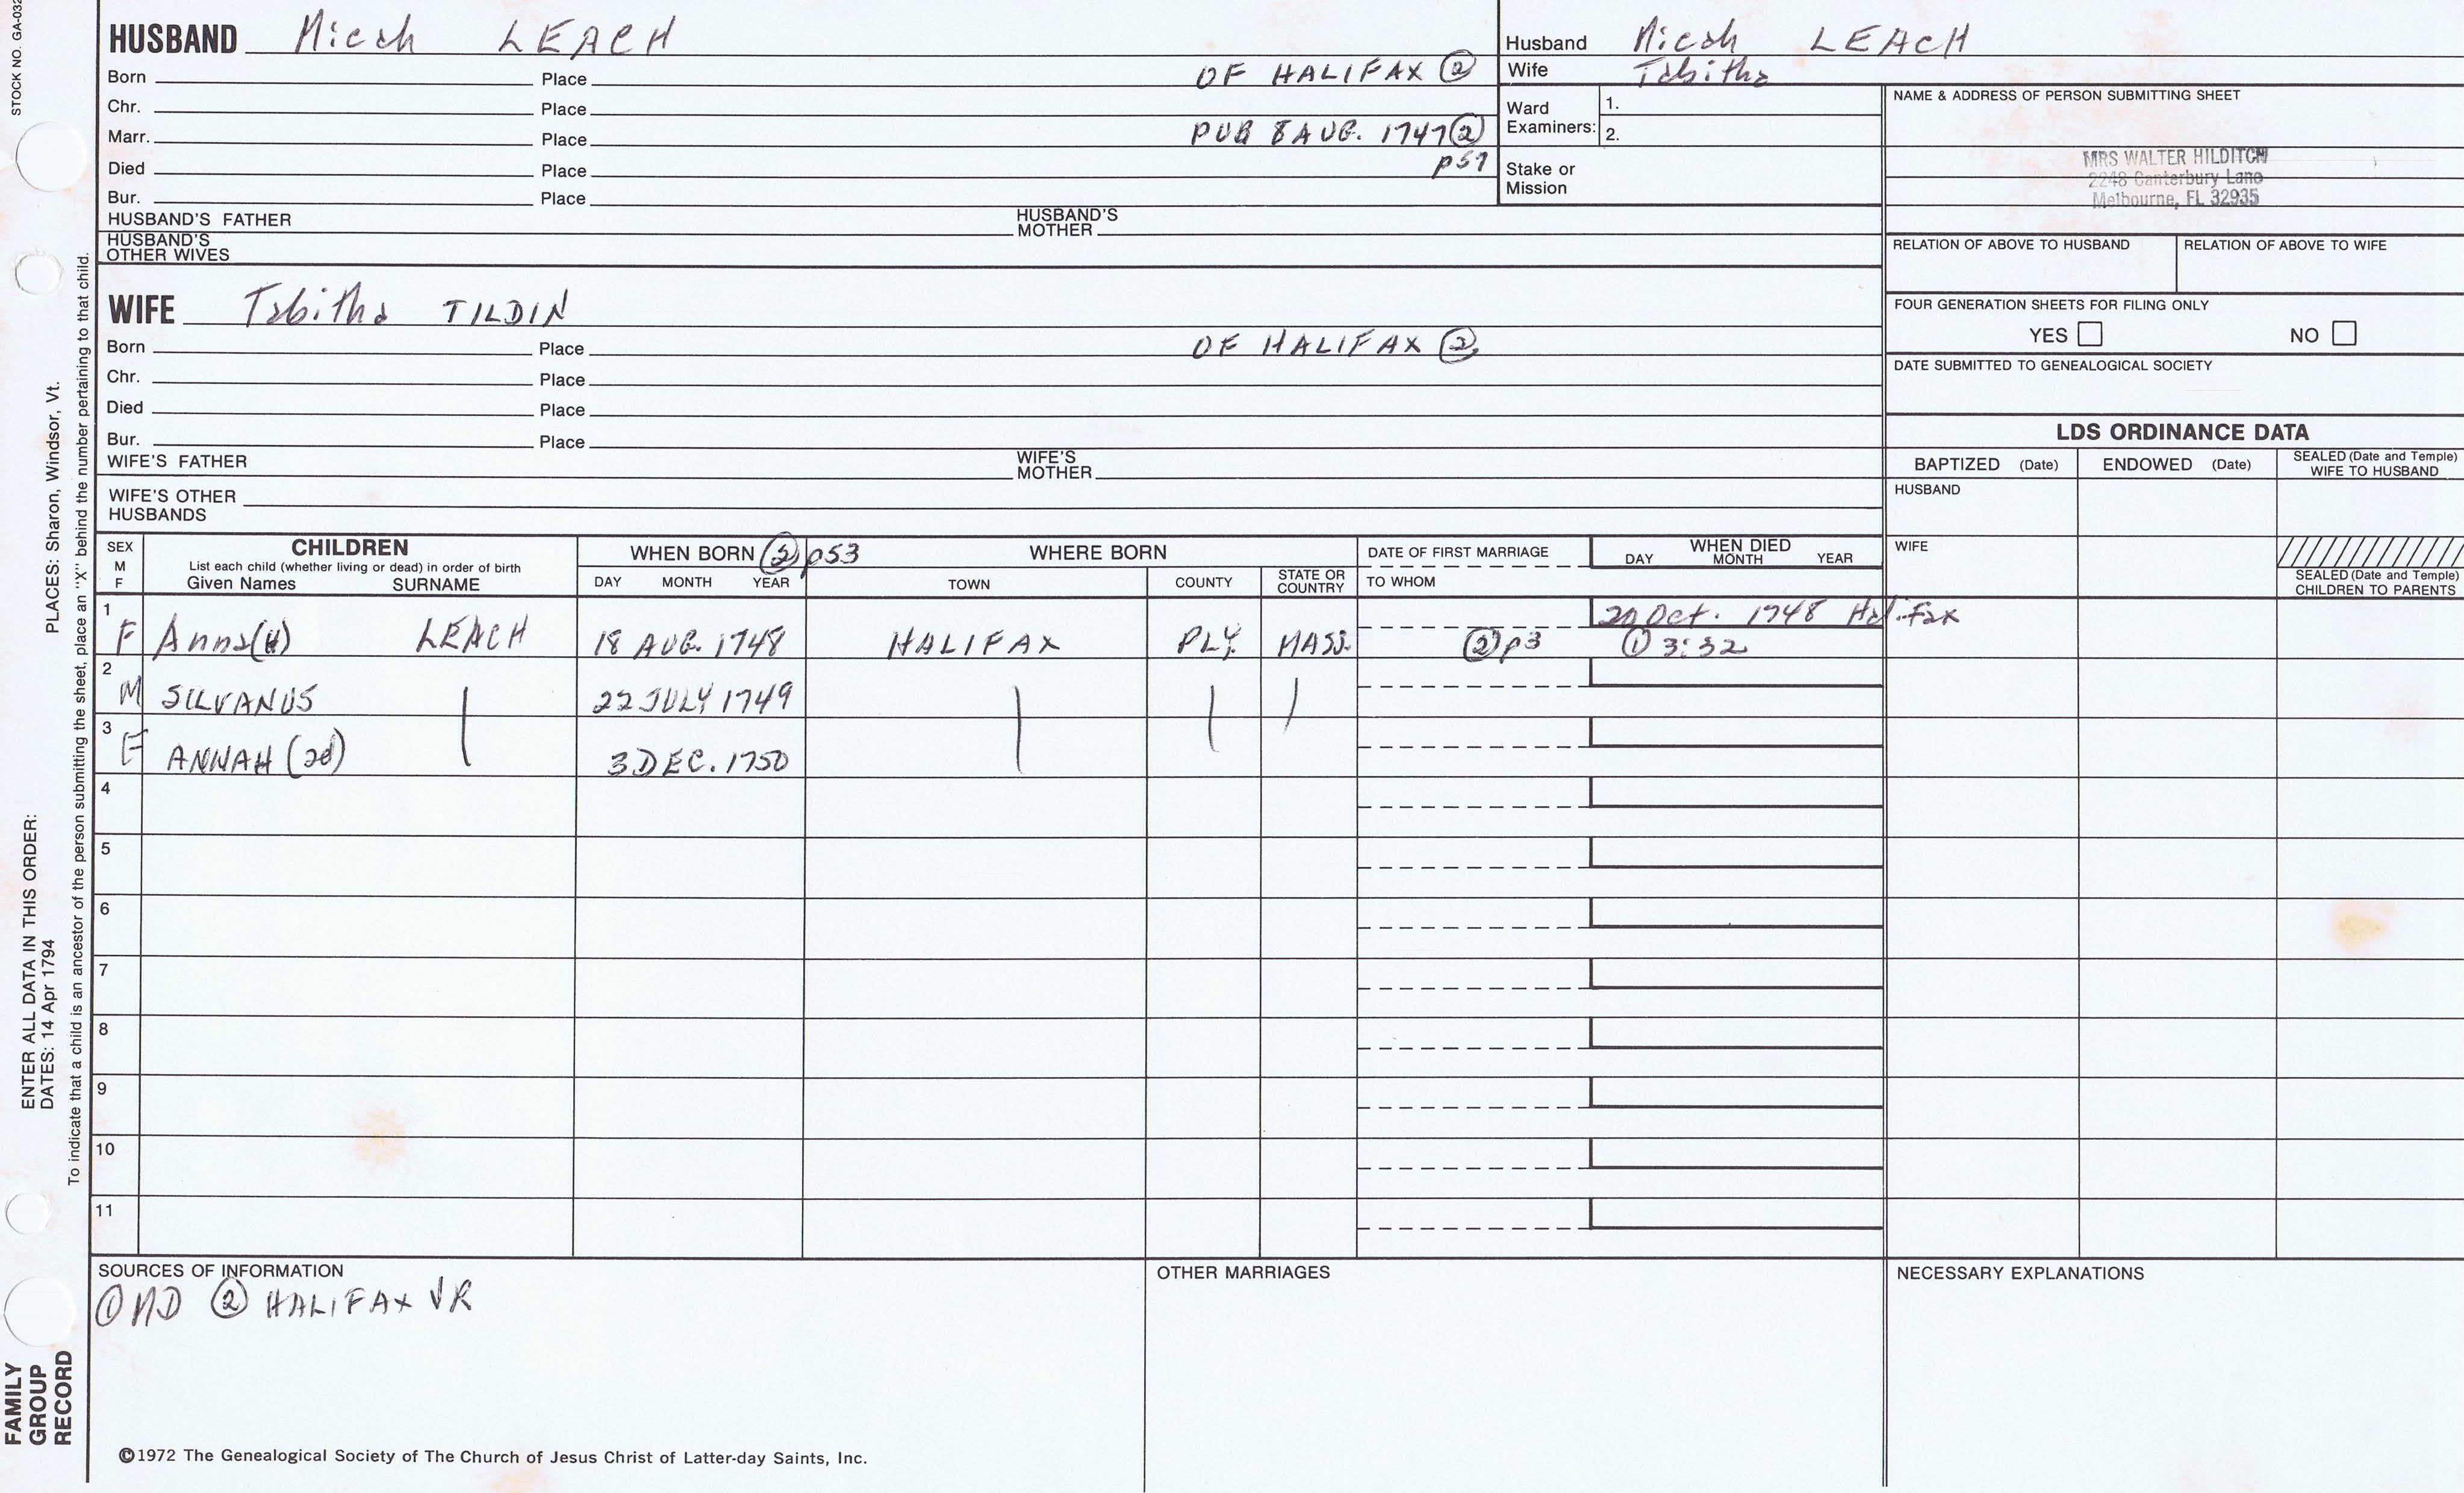 STOCK NO. GA-032
HUSBAND Micah LEACH
Born Place OF HALIFAX ②
Chr. Place
Marr. Place PUB 8 AUG. 1747 ②
Died Place p57
Bur. Place
HUSBAND'S FATHER HUSBAND'S MOTHER
HUSBAND'S OTHER WIVES
Husband Micah LEACH
Wife Tabitha
Ward Examiners: 1.
2.
Stake or Mission
NAME & ADDRESS OF PERSON SUBMITTING SHEET
MRS WALTER HILDITCH
2248 Canterbury Lane
Melbourne, FL 32935
RELATION OF ABOVE TO HUSBAND RELATION OF ABOVE TO WIFE
WIFE Tabitha TILDIN
Born Place OF HALIFAX ②
Chr. Place
Died Place
Bur. Place
WIFE'S FATHER WIFE'S MOTHER
WIFE'S OTHER HUSBANDS
FOUR GENERATION SHEETS FOR FILING ONLY
YES NO
DATE SUBMITTED TO GENEALOGICAL SOCIETY
LDS ORDINANCE DATA
BAPTIZED (Date) ENDOWED (Date) SEALED (Date and Temple) WIFE TO HUSBAND
HUSBAND
WIFE
SEALED (Date and Temple) CHILDREN TO PARENTS
SEX M F
CHILDREN
List each child (whether living or dead) in order of birth
Given Names SURNAME
WHEN BORN ② p53 WHERE BORN
DAY MONTH YEAR TOWN COUNTY STATE OR COUNTRY
DATE OF FIRST MARRIAGE
TO WHOM
WHEN DIED
DAY MONTH YEAR
1 F Anna(H) LEACH 18 AUG. 1748 HALIFAX PLY. MASS. ② p3 20 Oct. 1748 Halifax
① 3:32
2 M SILVANUS 22 JULY 1749
3 F ANNAH (2d) 3 DEC. 1750
4
5
6
7
8
9
10
11
SOURCES OF INFORMATION
① MD ② HALIFAX VR
OTHER MARRIAGES
NECESSARY EXPLANATIONS
©1972 The Genealogical Society of The Church of Jesus Christ of Latter-day Saints, Inc.
FAMILY GROUP RECORD
ENTER ALL DATA IN THIS ORDER:
DATES: 14 Apr 1794 PLACES: Sharon, Windsor, Vt.
To indicate that a child is an ancestor of the person submitting the sheet, place an "X" behind the number pertaining to that child.